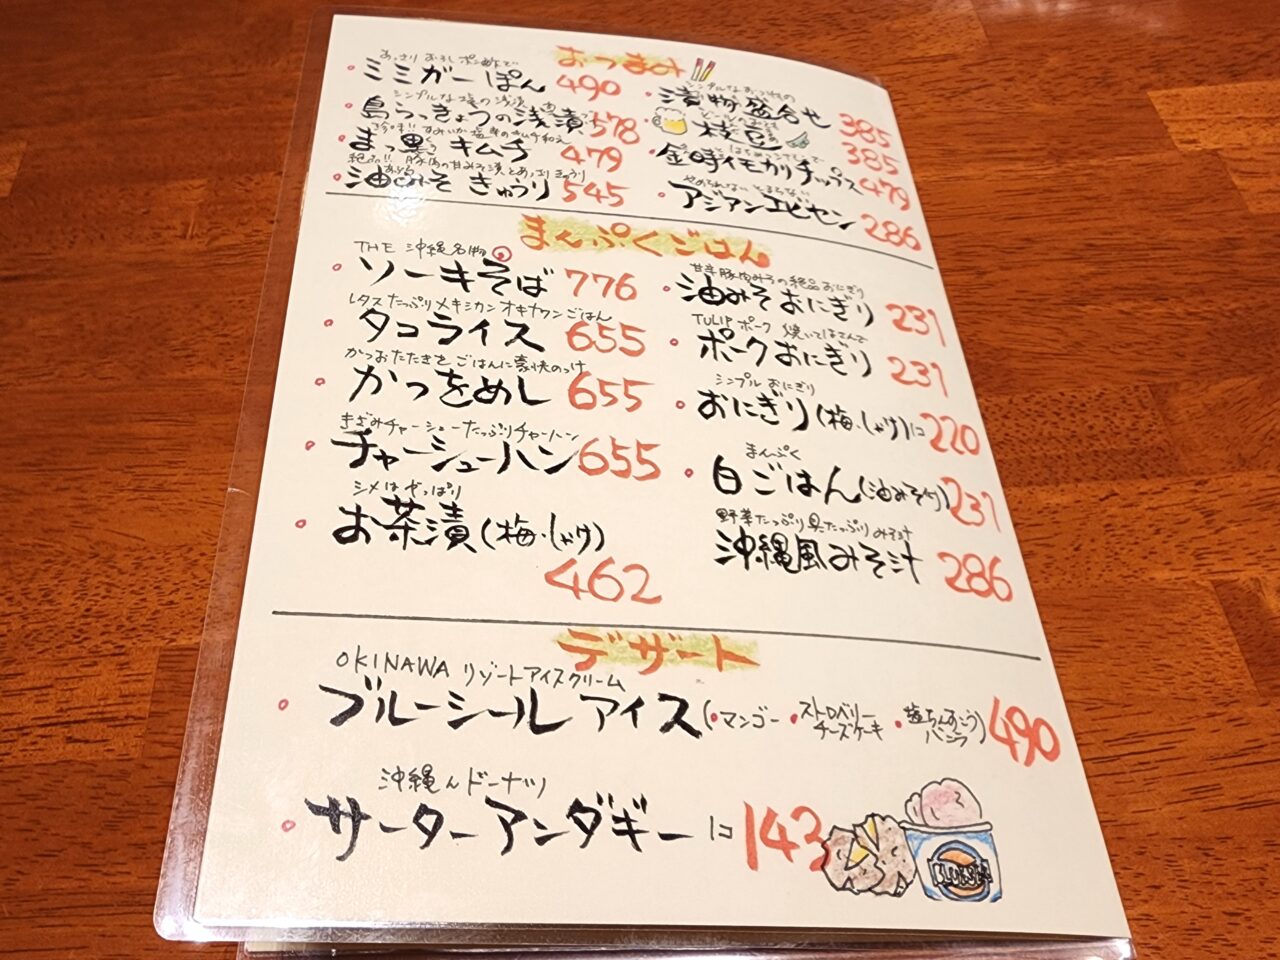 おつまみ
あっさり おろし ポン酢で
ミミガーぽん 490
シンプルな塩の浅漬
島らっきょうの浅漬 578
珍味!! すみいか塩辛のキムチ和え
まっ黒キムチ 479
絶品!! 豚肉の甘みそ漬とあっさりきゅうり
油みそ きゅうり 545
シンプルなおつけもの
漬物盛合せ 385
枝豆 385
金時イモカリチップス 479
やめられない とまらない
アジアンエビセン 286
まんぷくごはん
THE 沖縄名物
ソーキそば 776
レタスたっぷりメキシカン オキナワンごはん
タコライス 655
かつおたたきをごはんに豪快のっけ
かつをめし 655
きざみチャーシューたっぷりチャーハン
チャーシューハン 655
シメはやっぱり
お茶漬(梅・しゃけ)
462
甘辛豚肉みその絶品おにぎり
油みそおにぎり 231
TULIP ポーク 焼いてはさんで
ポークおにぎり 231
シンプルおにぎり
おにぎり(梅・しゃけ)1コ 220
まんぷく
白ごはん(油みそ付) 231
野菜たっぷり具たっぷりみそ汁
沖縄風みそ汁 286
デザート
OKINAWA リゾートアイスクリーム
ブルーシールアイス(・マンゴー ・ストロベリーチーズケーキ ・塩ちんすこうバニラ) 490
沖縄んドーナツ
サーターアンダギー 1コ 143